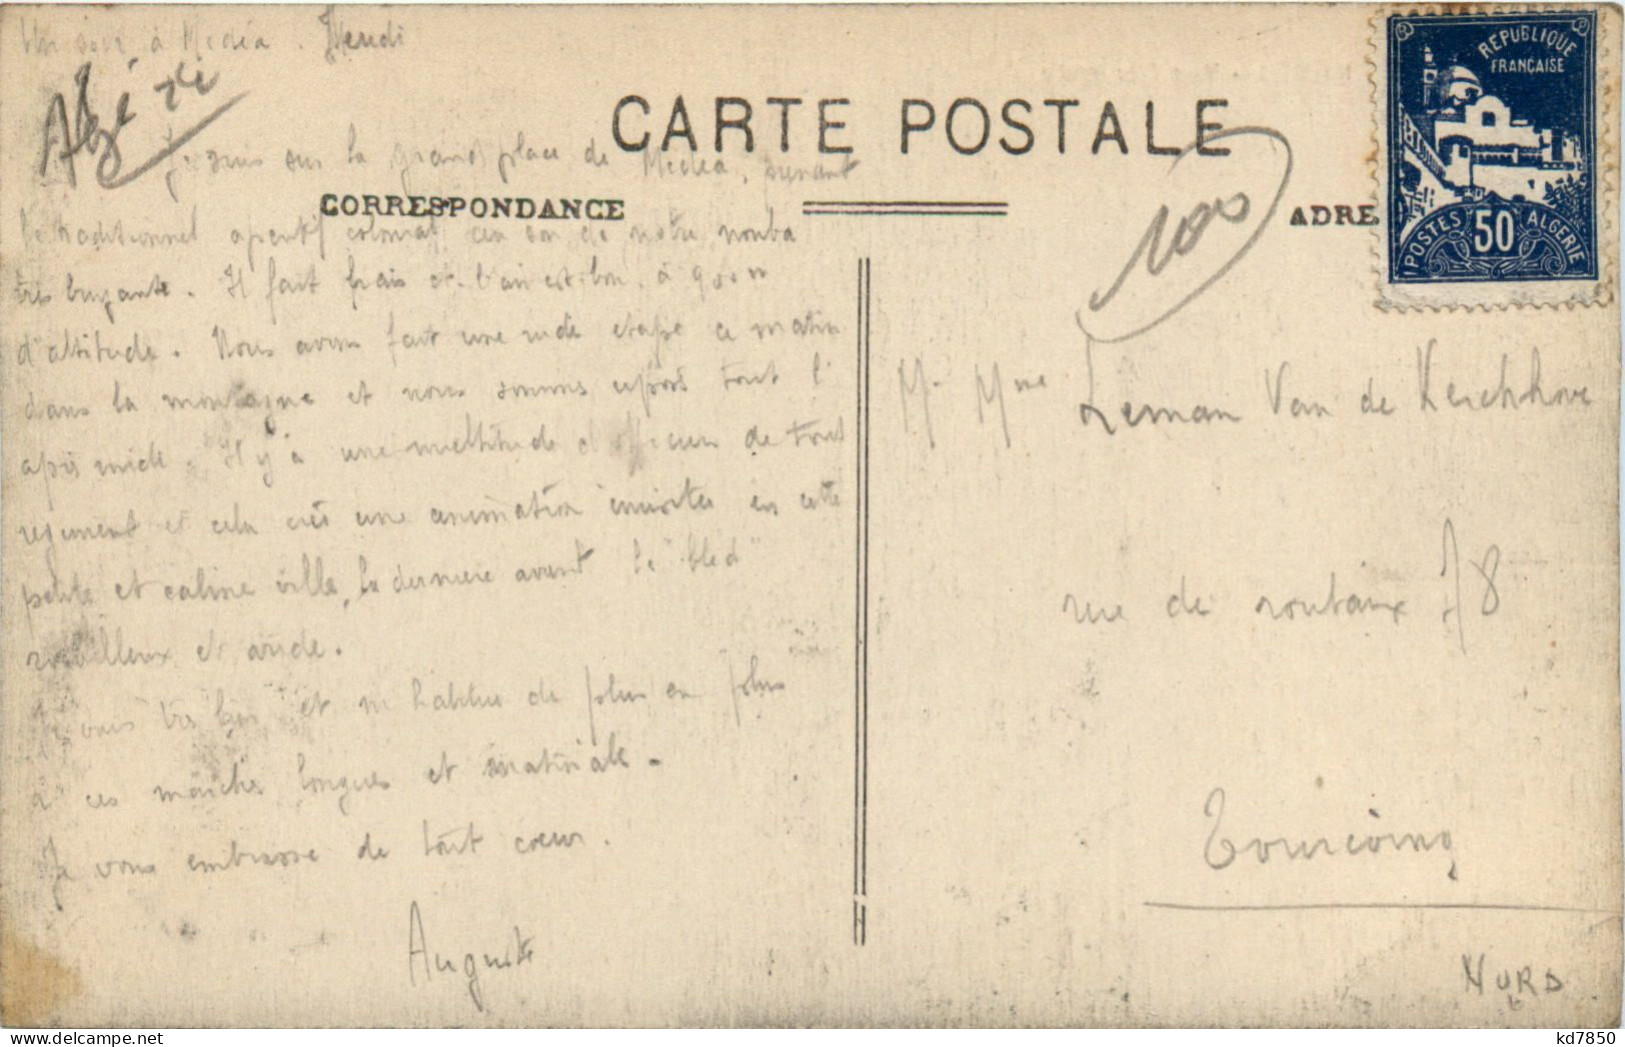 Un soir à Médéa. Mardi
CARTE POSTALE
Je suis sur la grand place de Médéa, prenant
CORRESPONDANCE
ADRE
le traditionnel apéritif colonial au son de notre nouba
très bruyante. Il fait frais et l'air est bon à 900 m
d'altitude. Nous avons fait une rude étape ce matin
dans la montagne et nous sommes repos tout l'
après midi. Il y a une multitude d'officiers de tout
régiment et cela crée une animation inusitée en cette
petite et caline ville, la dernière avant le "bled"
et aride.
Je vais très bien et m'habitue de plus en plus
à ces marches longues et matinales.
Je vous embrasse de tout coeur.
Auguste
1000
REPUBLIQUE
FRANÇAISE
POSTES 50 ALGERIE
M. Mme Leman Van de Kerckhove
rue de roubaix 78
Tourcoing
NORD
kd7850